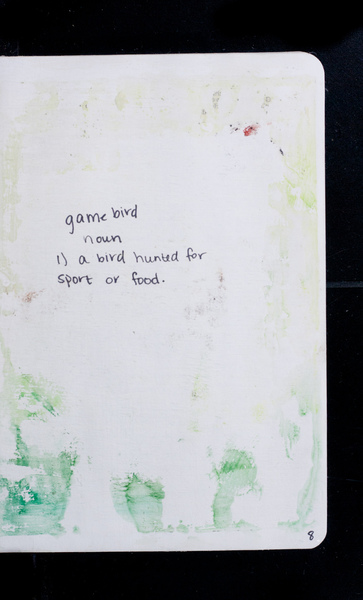 game bird
noun
1) a bird hunted for
sport or food.
8